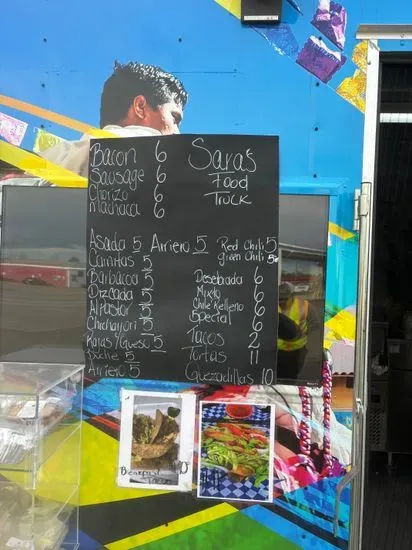 Bacon 6
Sausage 6
Chorizo 6
Machaca 6
Sara's
Food
Truck
Asada 5
Carnitas 5
Barbacoa 5
Dizcada 5
Al Pastor 5
Chicharron 5
Rajas y Queso 5
Bache 5
Arriero 5
Arriero 5
Red Chili 5
green Chili 5
Desebrada 6
Mixto 6
Chile Relleno 6
Special 6
Tacos 2
Tortas 11
Quezadillas 10
Breakfast
Tacos